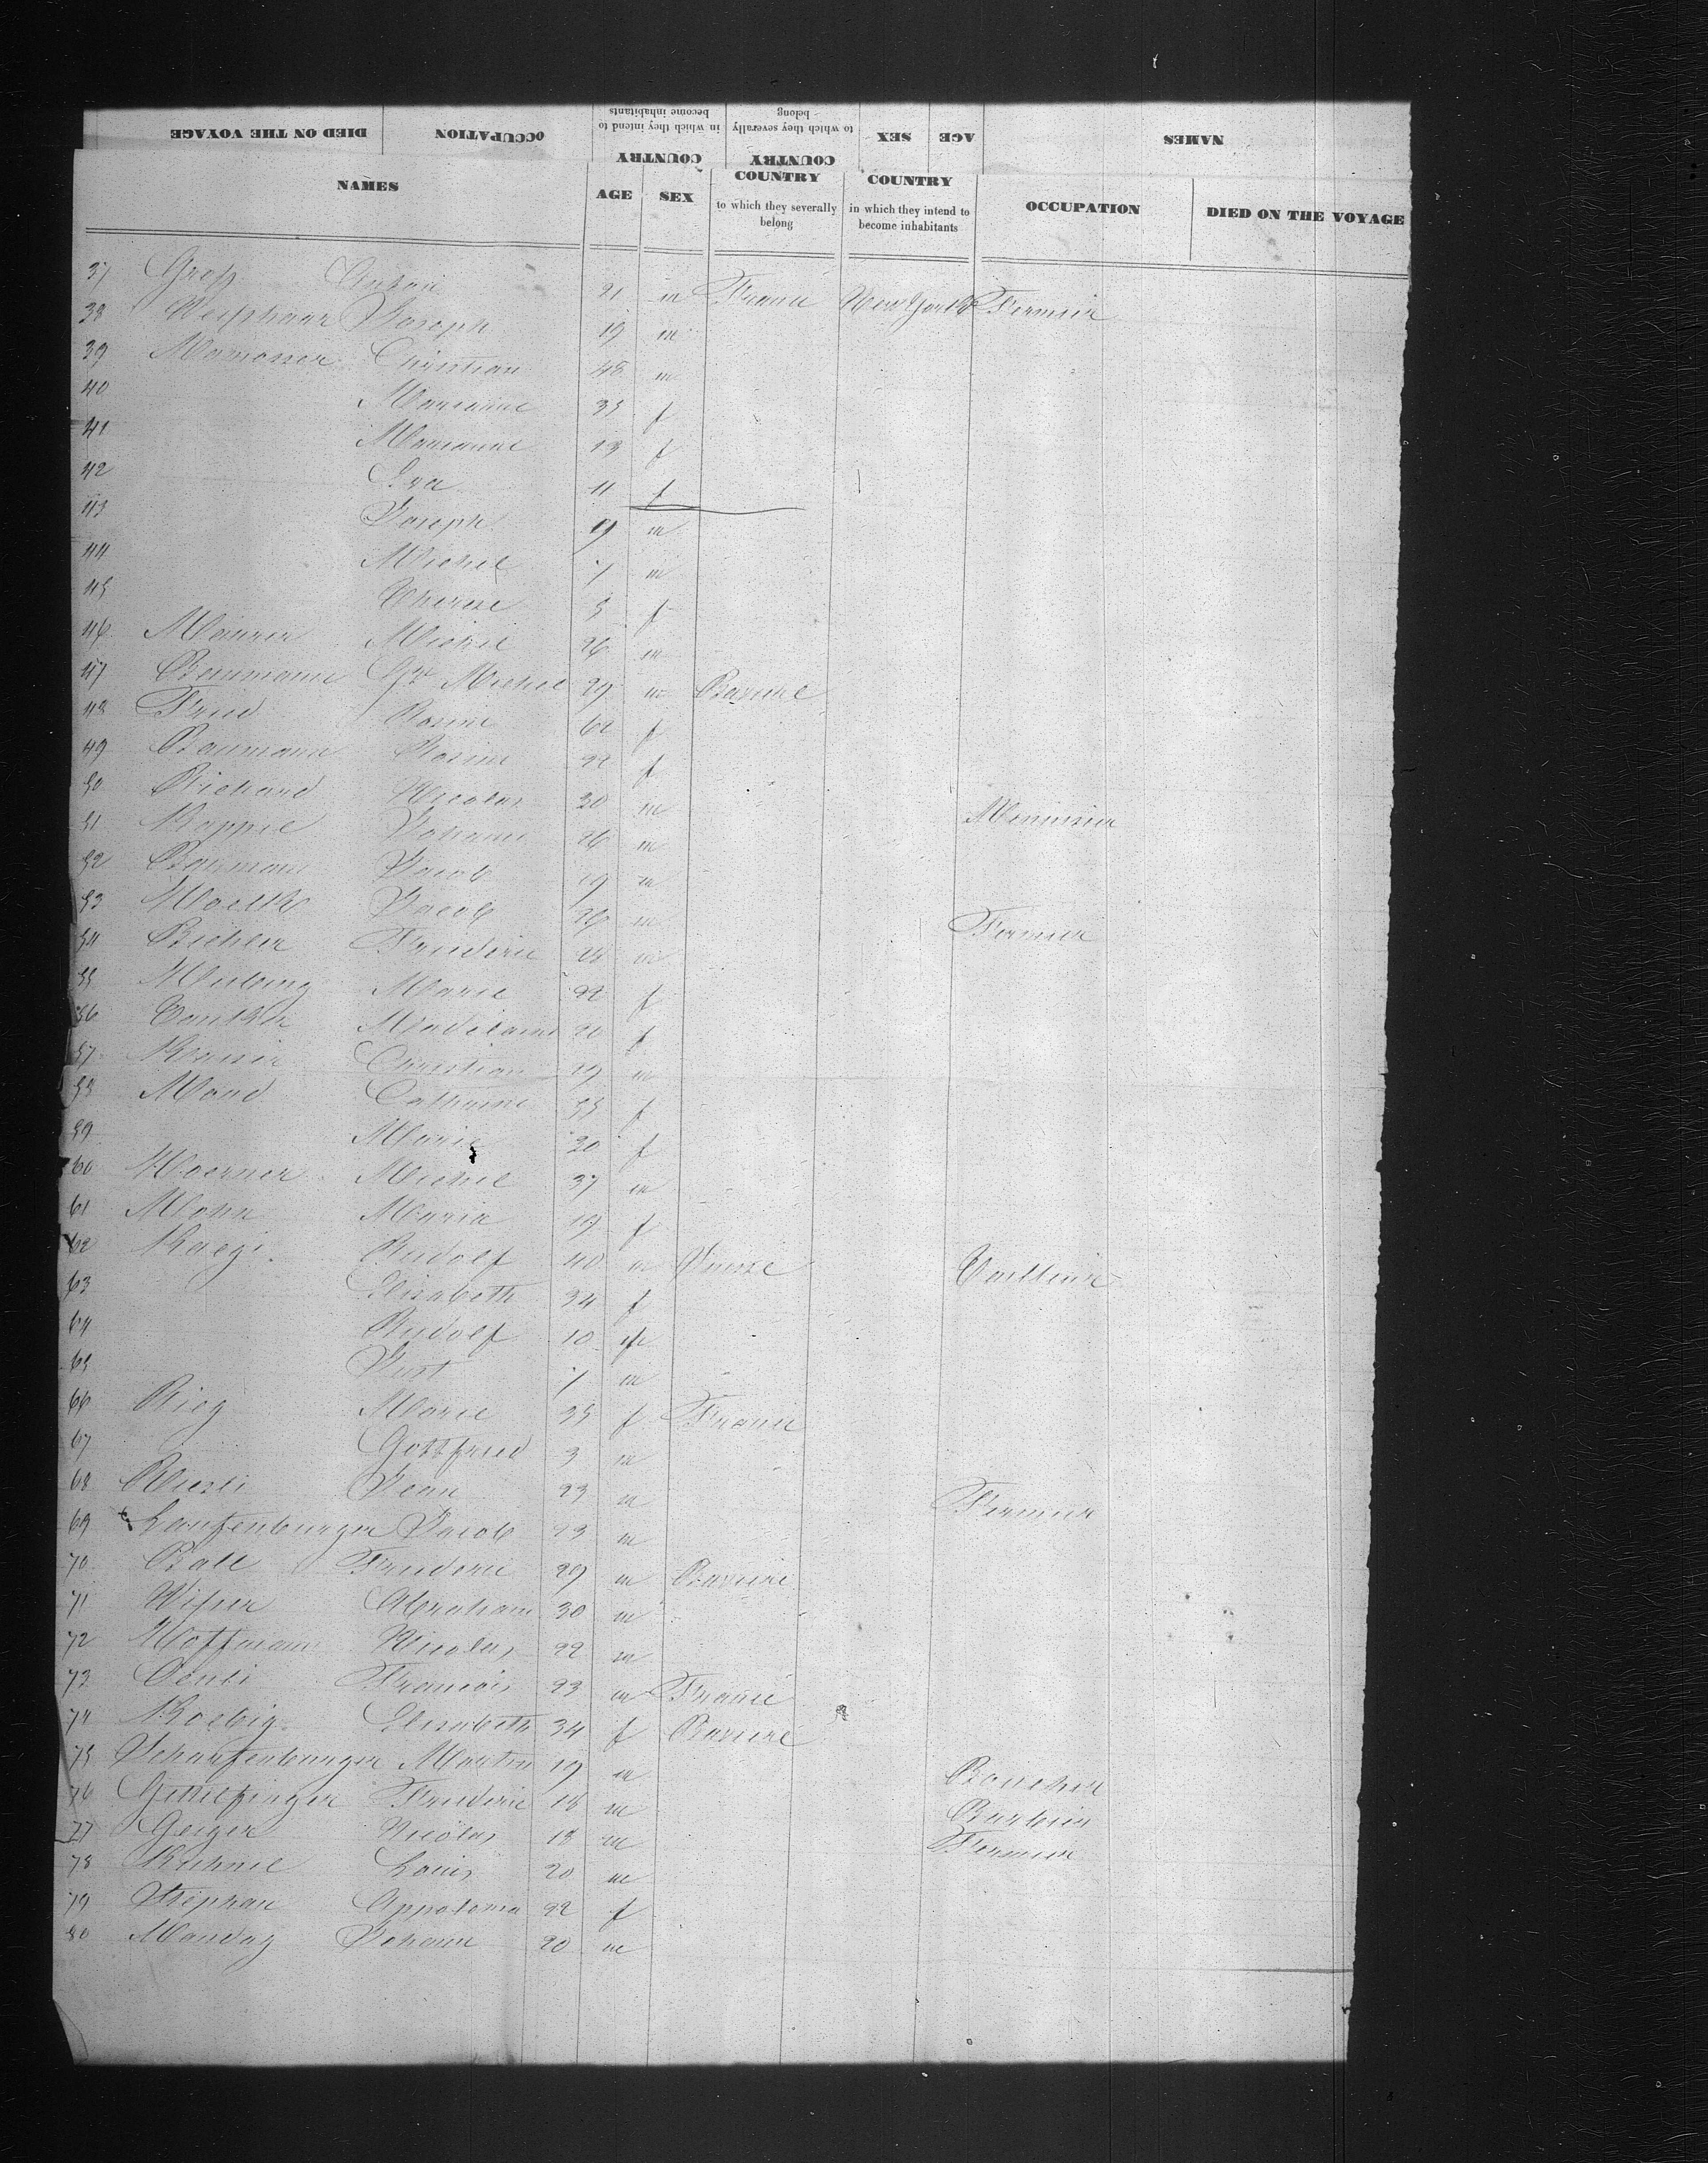 DIED ON THE VOYAGE OCCUPATION COUNTRY in which they intend to become inhabitants COUNTRY to which they severally belong SEX AGE NAMES
NAMES AGE SEX COUNTRY to which they severally belong COUNTRY in which they intend to become inhabitants OCCUPATION DIED ON THE VOYAGE
37 Groß Anton 21 m France New York Fermier
38 Joseph 19 m
39 Momosser Christian 48 m
40 Marianne 35 f
41 Marianne 13 f
42 Eva 11 f
43 Joseph 19 m
44 Michel 7 m
45 Therese 5 f
46 Maurer Michel 26 m
47 Baumann Michel 29 m Baviere
48 Fried Rosine 62 f
49 Baumann Rosine 22 f
50 Richard Nicolas 30 m Menuisier
51 Kappel Johann 26 m
52 Baumann Jacob 19 m
53 Jacob 26 m Fermier
54 Biehler Frederic 28 m
55 Marie 22 f
56 Madelaine 20 f
57 Christian 29 m
58 Mond Catharine 55 f
59 Marie 20 f
60 Woerner Michel 37 m
61 Mohn Maria 19 f
62 Kaegi Rudolf 40 m Suisse Tailleur
63 Elisabeth 34 f
64 Rudolf 10 m
65 Just 7 m
66 Rieg Marie 35 f France
67 Gottfried 3 m
68 Jean 23 m Fermier
69 Laufenburger Jacob 23 m
70 Ball Frederic 29 m Baviere
71 Abraham 30 m
72 Hoffmann Nicolas 22 m
73 Francois 23 m France
74 Koebig Elisabeth 34 f Baviere
75 Scharfenburger Martin 19 m Boucher
76 Frederic 18 m Barbier
77 Geiger Nicolas 18 m Fermier
78 Kuhnel Louis 20 m
79 Stephan Appolonia 22 f
80 Manday Johann 20 m